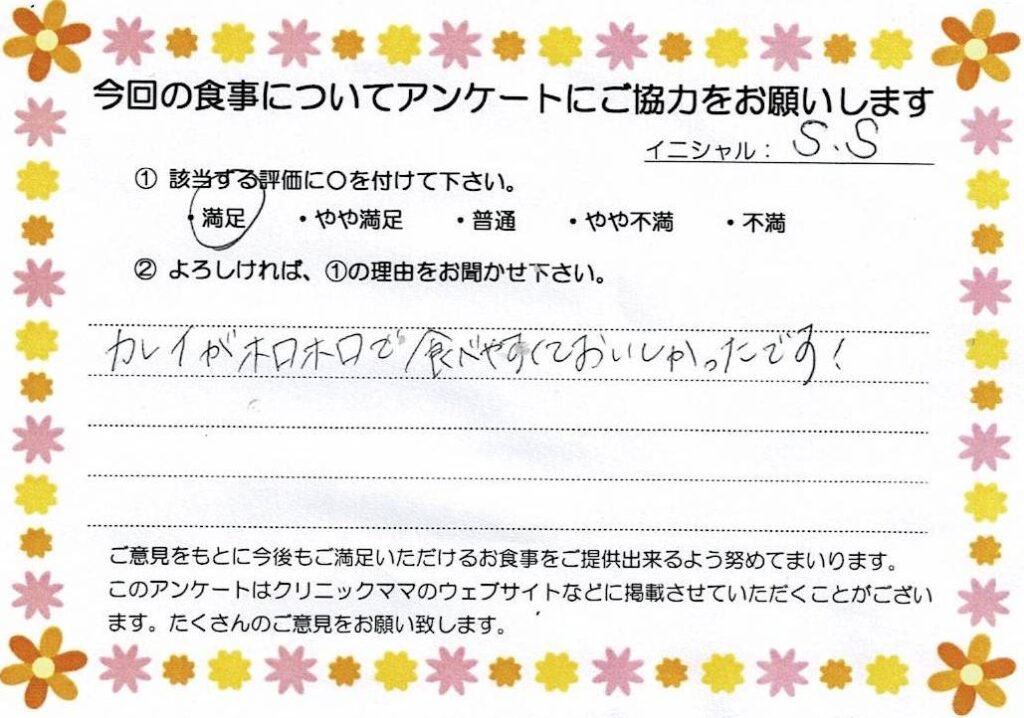 今回の食事についてアンケートにご協力をお願いします
イニシャル： S.S
① 該当する評価に〇を付けて下さい。
・満足 ・やや満足 ・普通 ・やや不満 ・不満
② よろしければ、①の理由をお聞かせ下さい。
カレイがホロホロで食べやすくておいしかったです！
ご意見をもとに今後もご満足いただけるお食事をご提供出来るよう努めてまいります。
このアンケートはクリニックママのウェブサイトなどに掲載させていただくことがござい
ます。たくさんのご意見をお願い致します。